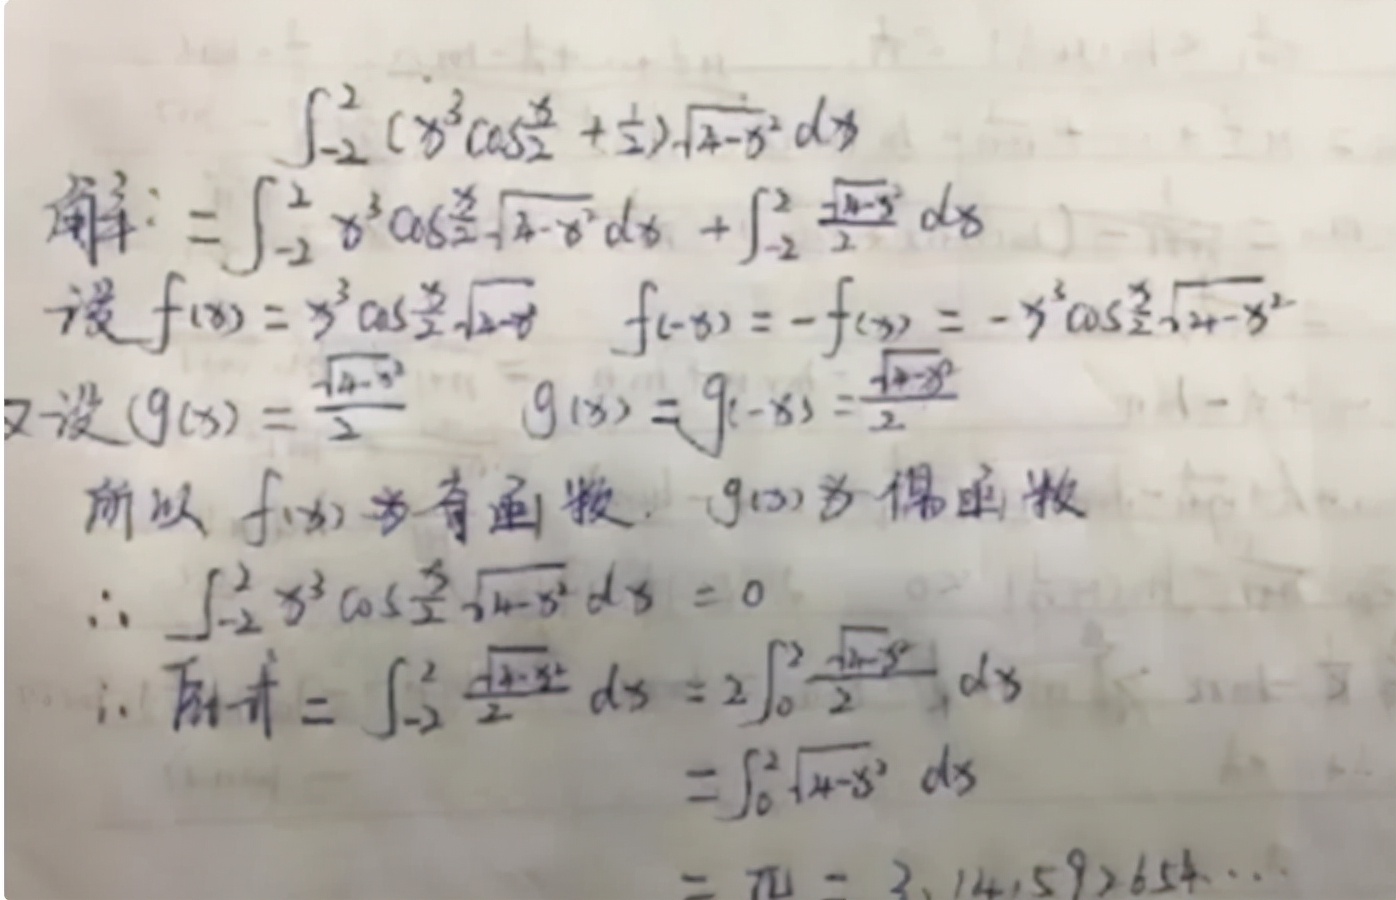 ∫_{-2}^{2} (x³cos x/2 + 1/2)√(4-x²) dx
解: = ∫_{-2}^{2} x³cos x/2 √(4-x²) dx + ∫_{-2}^{2} √(4-x²)/2 dx
设 f(x) = x³cos x/2 √(2-x) f(-x) = -f(x) = -x³cos x/2 √(4-x²)
又设 g(x) = √(4-x²)/2 g(x) = g(-x) = √(4-x²)/2
所以 f(x) 为奇函数. g(x) 为偶函数
∴ ∫_{-2}^{2} x³cos x/2 √(4-x²) dx = 0
∴ 原式 = ∫_{-2}^{2} √(4-x²)/2 dx = 2∫_{0}^{2} √(4-x²)/2 dx
= ∫_{0}^{2} √(4-x²) dx
= π = 3.14592654...